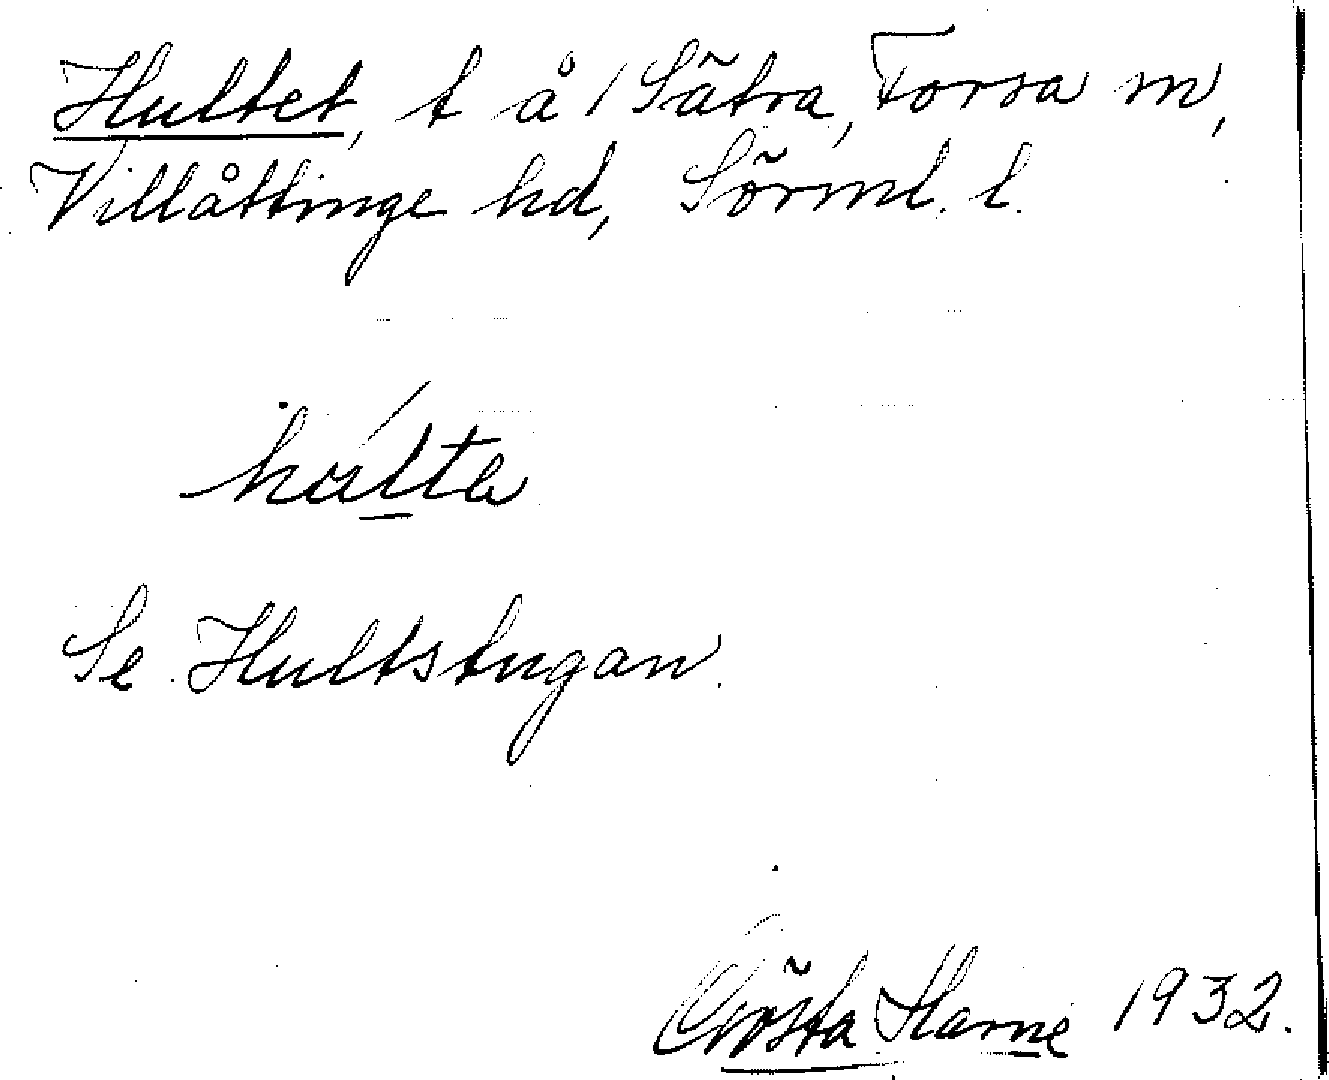 Hultet, t å 1 Sätra, Forssa sn,
Villåttinge hd, Sörml. l.
Se Hultstugan.
Gösta Harne 1932.